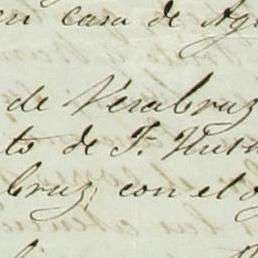 en casa de Ag
de Veracruz
to de J. Huth
Cruz, con el